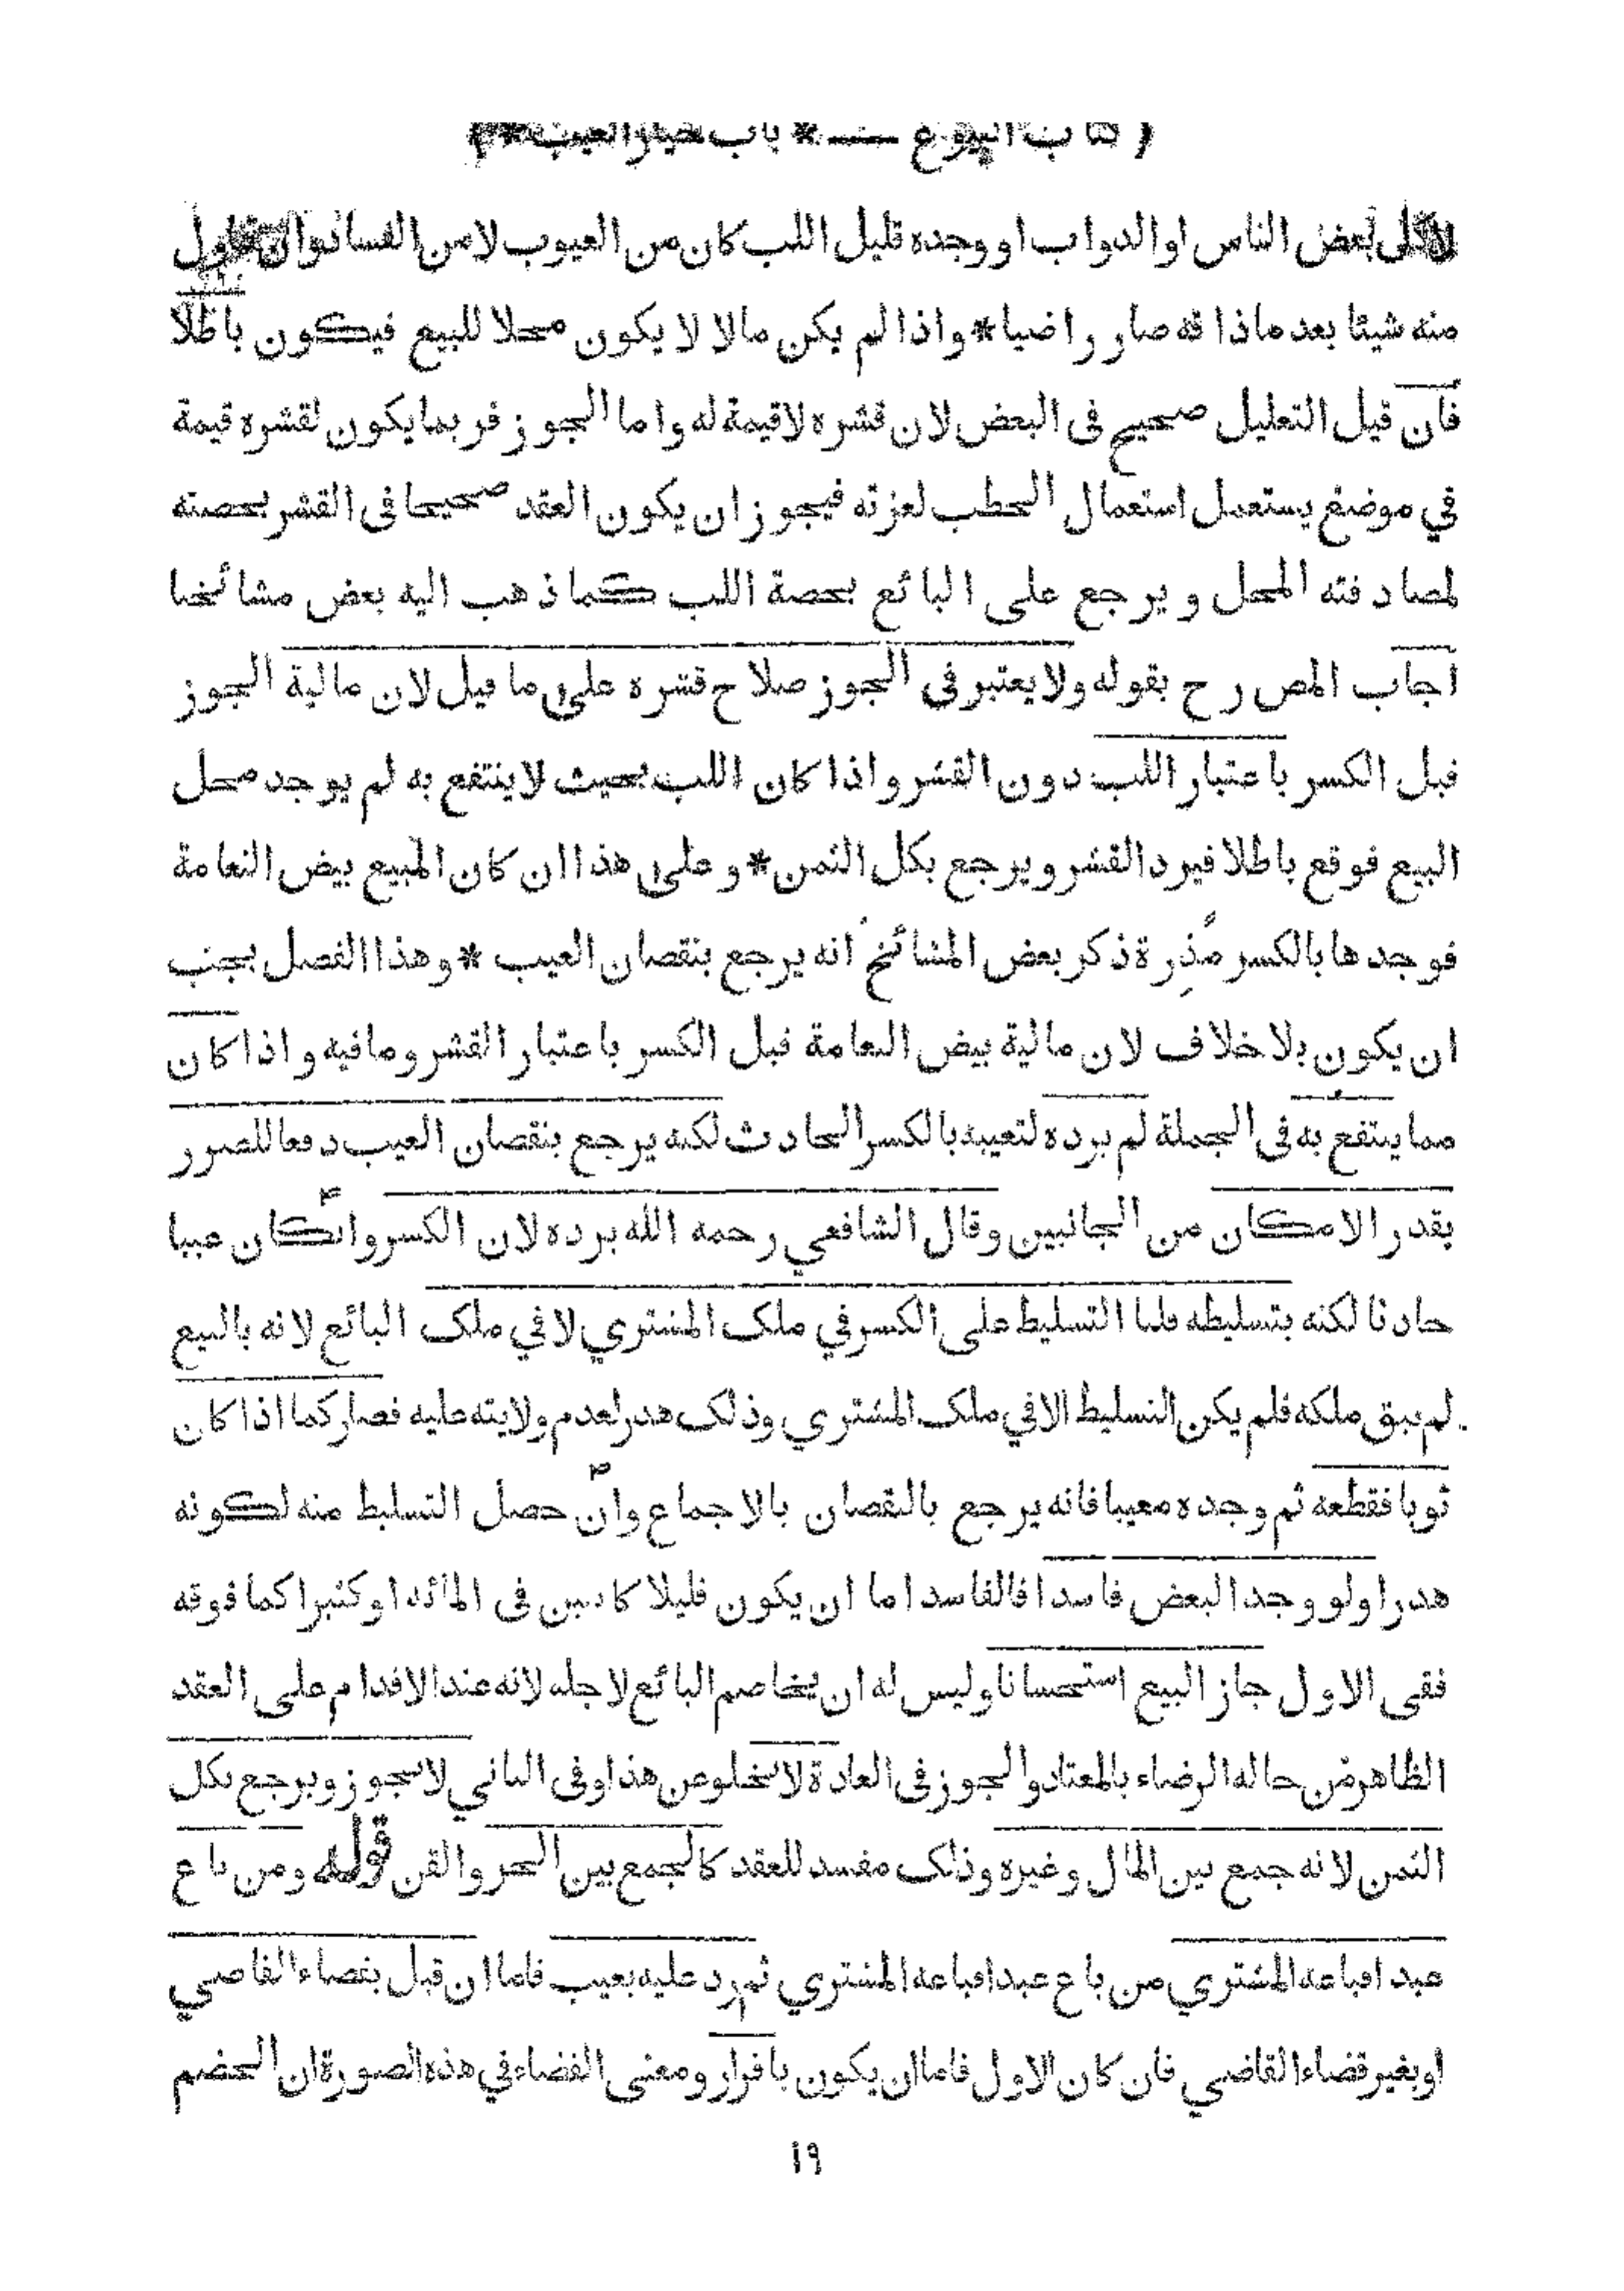 ( كتاب البيوع ـــ * باب خيار العيب * )
لاكل بعض الناس او الدواب او وجده قليل اللب كان من العيوب لا من الفساد وان تناول
منه شيئا بعد ما ذاقه صار راضيا * واذا لم يكن مالا لا يكون محلا للبيع فيكون باطلا
فان قيل التعليل صحيح فى البعض لان قشره لا قيمة له واما الجوز فربما يكون لقشره قيمة
في موضع يستعمل استعمال الحطب لعزته فيجوز ان يكون العقد صحيحا فى القشر بحصته
لمصادفته المحل ويرجع على البائع بحصة اللب كما ذهب اليه بعض مشائخنا
اجاب المص رح بقوله ولا يعتبر فى الجوز صلاح قشره على ما قيل لان مالية الجوز
قبل الكسر باعتبار اللب دون القشر واذا كان اللب بحيث لا ينتفع به لم يوجد محل
البيع فوقع باطلا فيرد القشر ويرجع بكل الثمن * وعلى هذا ان كان المبيع بيض النعامة
فوجدها بالكسر مذرة ذكر بعض المشائخ انه يرجع بنقصان العيب * وهذا الفصل يجب
ان يكون بلا خلاف لان مالية بيض النعامة قبل الكسر باعتبار القشر وما فيه واذا كان
مما ينتفع به فى الجملة لم يرده لتعيبه بالكسر الحادث لكنه يرجع بنقصان العيب دفعا للضرر
بقدر الامكان من الجانبين وقال الشافعي رحمه الله يرده لان الكسر وان كان عيبا
حادثا لكنه بتسليطه قلنا التسليط على الكسر في ملك المشتري لا في ملك البائع لانه بالبيع
لم يبق ملكه فلم يكن التسليط الا في ملك المشتري وذلك هدر لعدم ولايته عليه فصار كما اذا كان
ثوبا فقطعه ثم وجده معيبا فانه يرجع بالنقصان بالاجماع وان حصل التسليط منه لكونه
هدرا ولو وجد البعض فاسدا فالفاسد اما ان يكون قليلا كاثنين فى المائة او كثيرا كما فوقه
ففى الاول جاز البيع استحسانا وليس له ان يخاصم البائع لاجله لانه عند الاقدام على العقد
الظاهر من حاله الرضاء بالمعتاد والجوز فى العادة لا يخلو عن هذا وفى الثاني لا يجوز ويرجع بكل
الثمن لانه جمع بين المال وغيره وذلك مفسد للعقد كالجمع بين الحر والقن قوله ومن باع
عبدا فباعه المشتري من باع عبدا فباعه المشتري ثم رد عليه بعيب فاما ان قبل بقضاء القاضي
او بغير قضاء القاضي فان كان الاول فاما ان يكون باقرار ومعنى القضاء في هذه الصورة ان الخصم
١٩